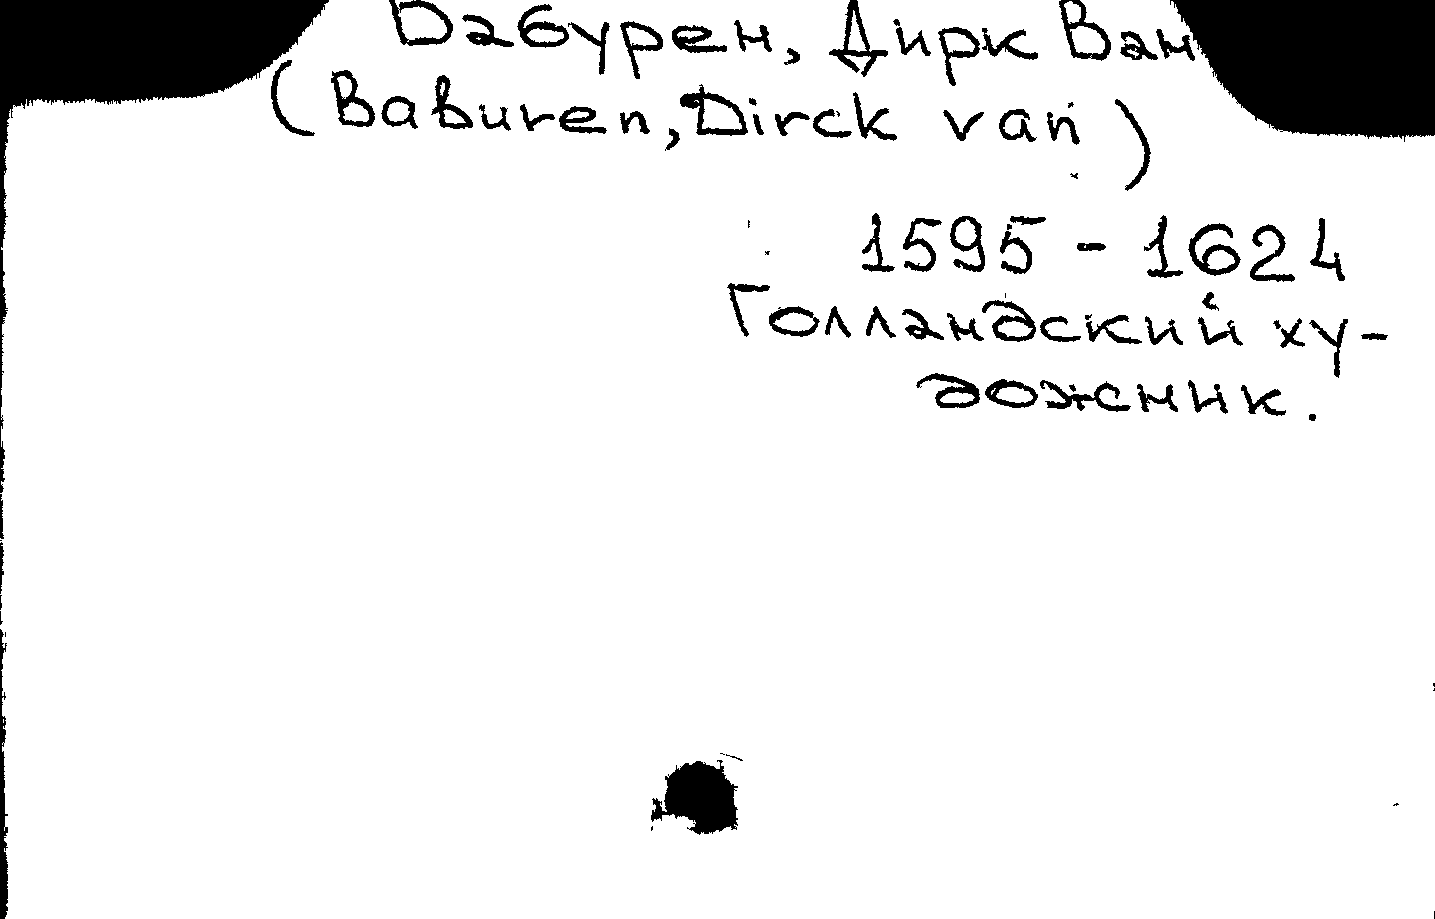 Бабурен, Дирк Ван
(Baburen, Dirck van)
1595 - 1624
Голландский ху-
дожник.